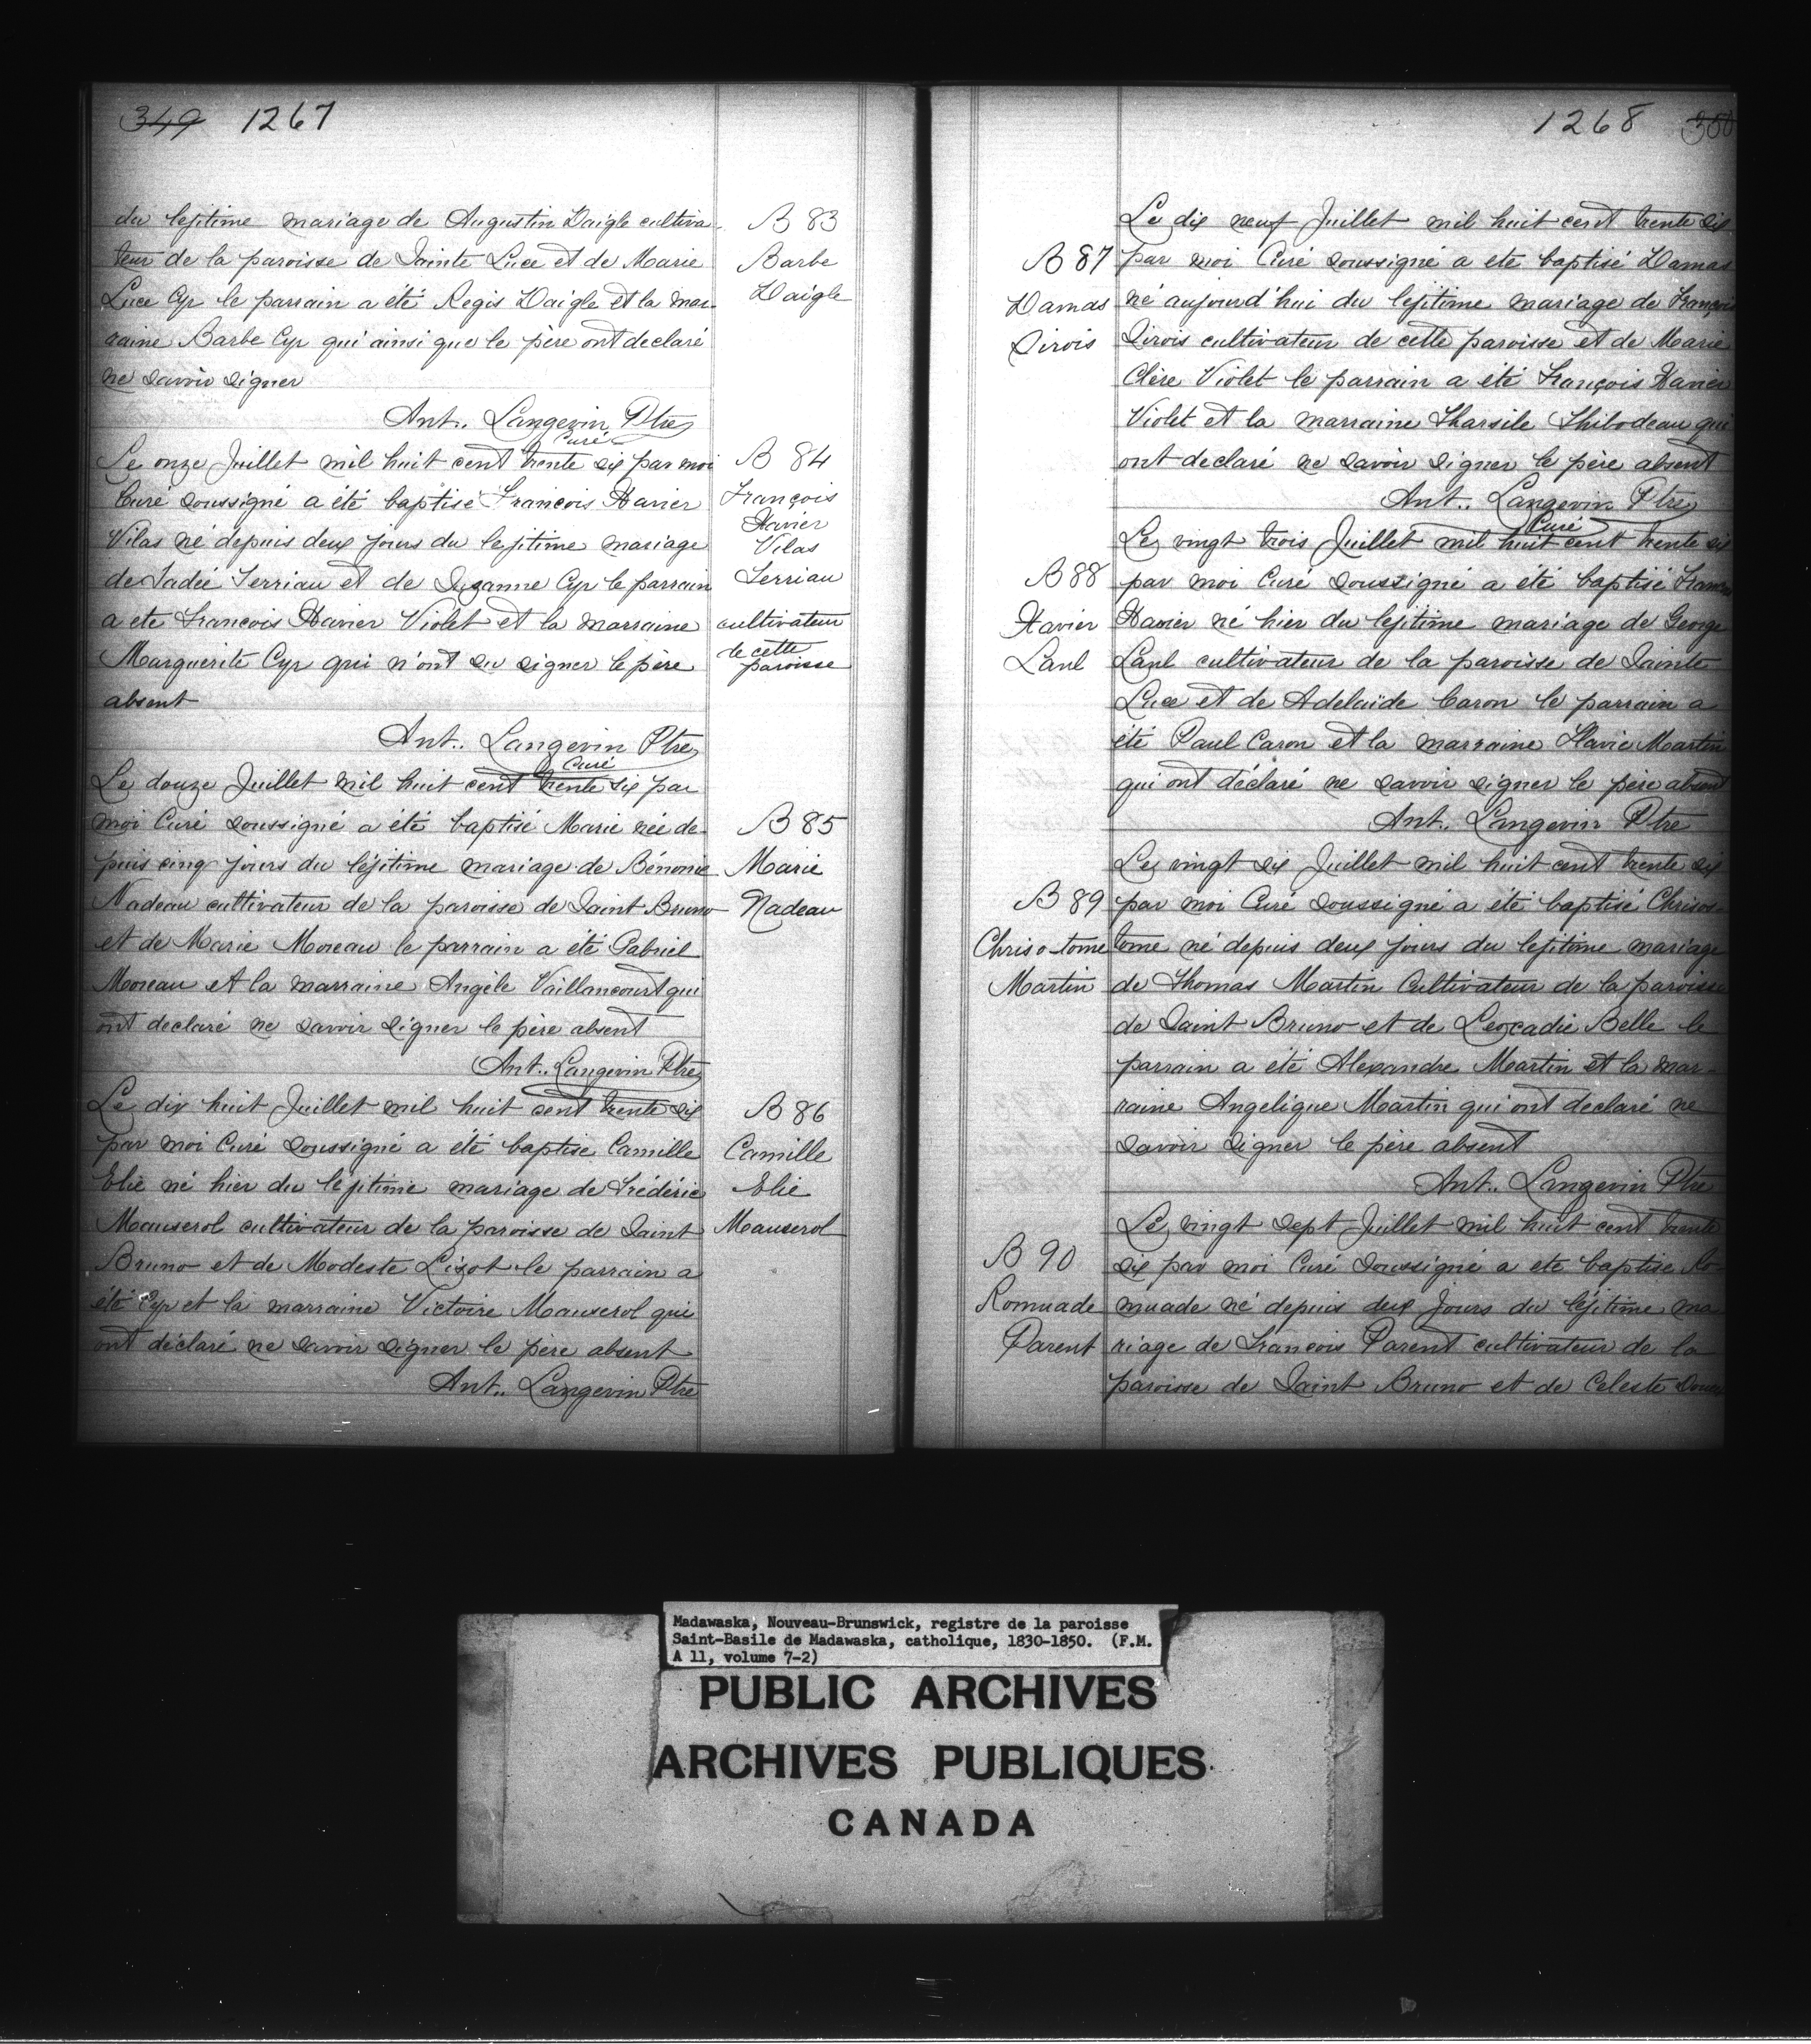 349 1267
du lejitime mariage de Augustin Daigle cultiva-
teur de la paroisse de Sainte Luce et de Marie
Luce Cyr le parrain a été Regis Daigle et la mar-
raine Barbe Cyr qui ainsi que le père ont declaré
ne savoir signer
Ant.. Langevin Ptre
Curé
B 83
Barbe
Daigle
Le onze Juillet mil huit cent trente six par moi
Curé soussigné a été baptisé François Xavier
Vilas né depuis deux jours du lejitime mariage
de Tadée Terriau et de Suzanne Cyr le parrain
a ete Francois Xavier Violet et la marraine
Marguerite Cyr qui n'ont su signer le père
absent
Ant.. Langevin Ptre
Curé
B 84
François
Xavier
Vilas
Terriau
cultivateur
de cette
paroisse
Le douze Juillet mil huit cent trente six par
moi Curé soussigné a été baptisé Marie née de-
puis cinq jours du léjitime mariage de Bénonie
Nadeau cultivateur de la paroisse de Saint Bruno
et de Marie Moreau le parrain a été Gabriel
Moreau et la marraine Angèle Vaillancourt qui
ont declaré ne savoir signer le père absent
Ant.. Langevin Ptre
B 85
Marie
Nadeau
Le dix huit Juillet mil huit cent trente six
par moi Curé soussigné a été baptise Camille
Elie né hier du léjitime mariage de Frédéric
Mauserol cultivateur de la paroisse de Saint
Bruno et de Modeste Lizot le parrain a
été Cyr et la marraine Victoire Mauserol qui
ont déclaré ne savoir signer le père absent
Ant.. Langevin Ptre
B 86
Camille
Elie
Mauserol
1268 350
Le dix neuf Juillet mil huit cent trente six
par moi Curé soussigné a ete baptisé Damas
né aujourd'hui du lejitime mariage de François
Sirois cultivateur de cette paroisse et de Marie
Clère Violet le parrain a été François Xavier
Violet et la marraine Tharsile Thibodeau qui
ont declaré ne savoir signer le père absent
Ant.. Langevin Ptre
Curé
B 87
Damas
Sirois
Le vingt trois Juillet mil huit cent trente six
par moi Curé soussigné a été baptisé
Xavier né hier du lejitime mariage de George
Laul cultivateur de la paroisse de Sainte
Luce et de Adelaïde Caron le parrain a
été Paul Caron et la marraine Flavie Martin
qui ont déclaré ne savoir signer le père absent
Ant.. Langevin Ptre
B 88
Xavier
Laul
Le vingt six Juillet mil huit cent trente six
par moi Curé soussigné a été baptisé Chrisos-
tome né depuis deux jours du lejitime mariage
de Thomas Martin Cultivateur de la paroisse
de Saint Bruno et de Leocadie Belle le
parrain a été Alexandre Martin et la mar-
raine Angelique Martin qui ont declaré ne
savoir signer le père absent
Ant.. Langevin Ptre
B 89
Chriso-tome
Martin
Le vingt sept Juillet mil huit cent trente
six par moi Curé soussigné a ete baptise Ro-
muade né depuis deux jours du léjitime ma
riage de Francois Parent cultivateur de la
paroisse de Saint Bruno et de Celeste
B 90
Romuade
Parent
Madawaska, Nouveau-Brunswick, registre de la paroisse
Saint-Basile de Madawaska, catholique, 1830-1850. (F.M.
A 11, volume 7-2)
PUBLIC ARCHIVES
ARCHIVES PUBLIQUES
CANADA